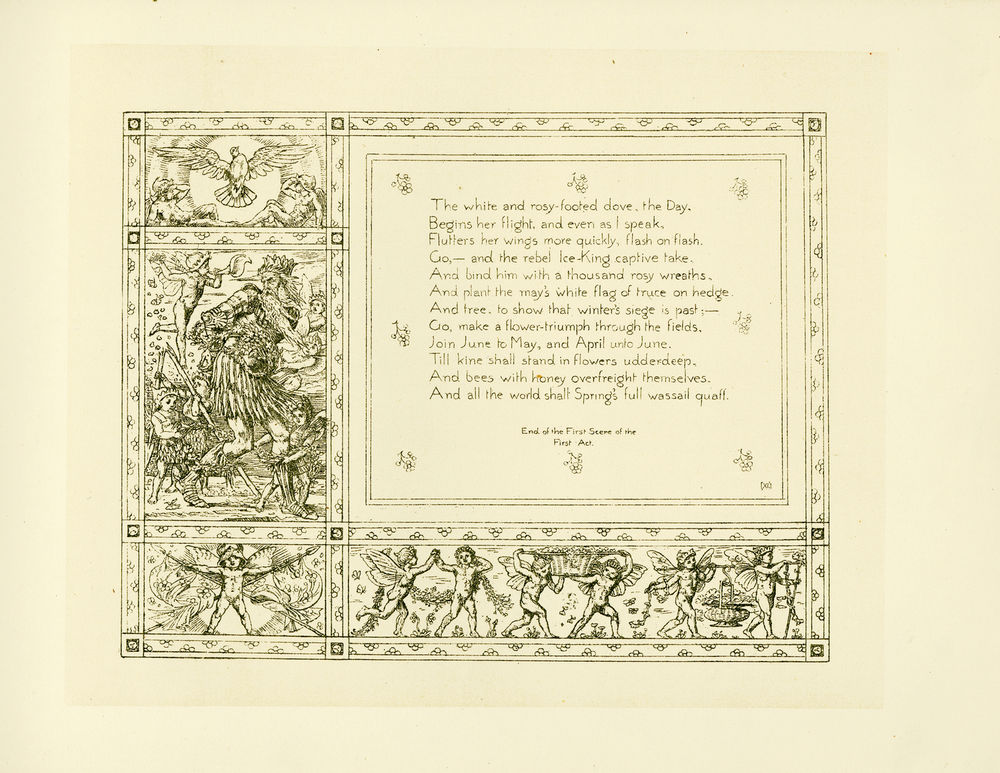 The white and rosy-footed dove, the Day,
Begins her flight, and even as I speak,
Flutters her wings more quickly, flash on flash.
Go,— and the rebel Ice-King captive take.
And bind him with a thousand rosy wreaths,
And plant the may's white flag of truce on hedge.
And tree, to show that winter's siege is past;—
Go, make a flower-triumph through the fields,
Join June to May, and April unto June.
Till kine shall stand in flowers udder-deep,
And bees with honey overfreight themselves.
And all the world shall Spring's full wassail quaff.
End of the First Scene of the
First Act.